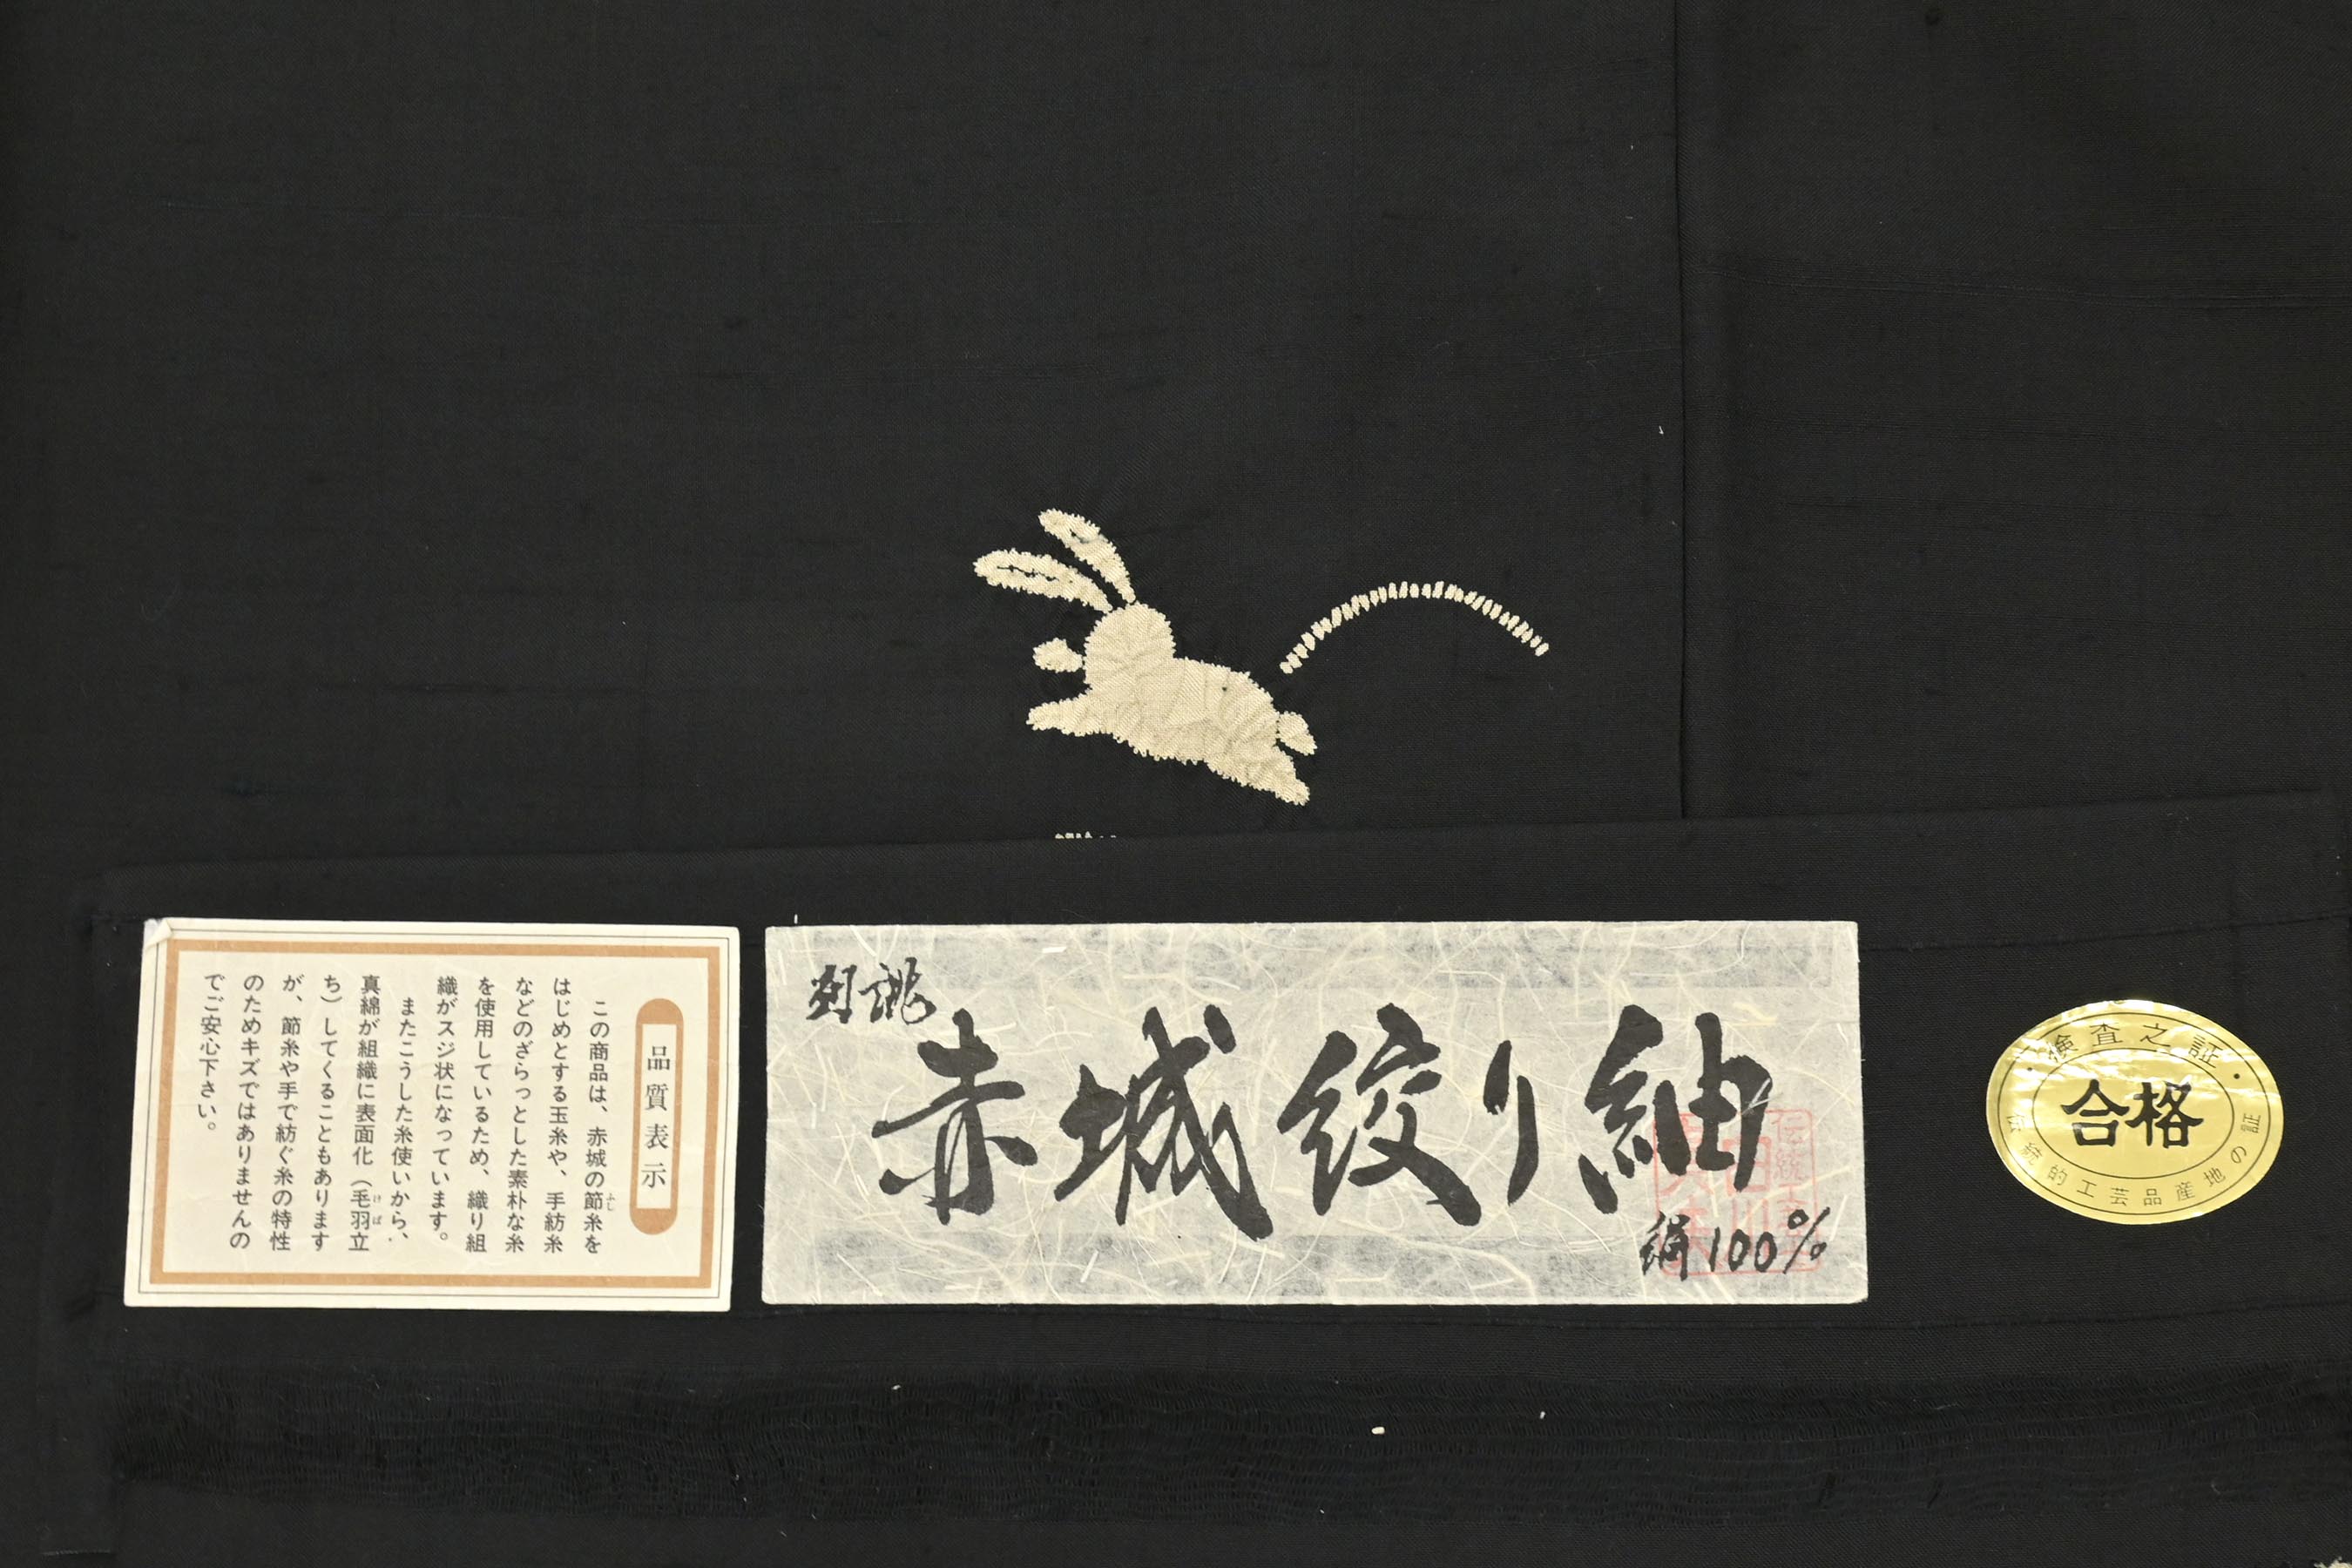 品質表示
この商品は、赤城の節糸を
はじめとする玉糸や、手紡糸
などのざらっとした素朴な糸
を使用しているため、織り組
織がスジ状になっています。
またこうした糸使いから、
真綿が組織に表面化（毛羽立
ち）してくることもあります
が、節糸や手で紡ぐ糸の特性
のためキズではありませんの
でご安心下さい。
別誂
赤城絞り紬
絹100%
検査之証
合格
統的工芸品産地の証